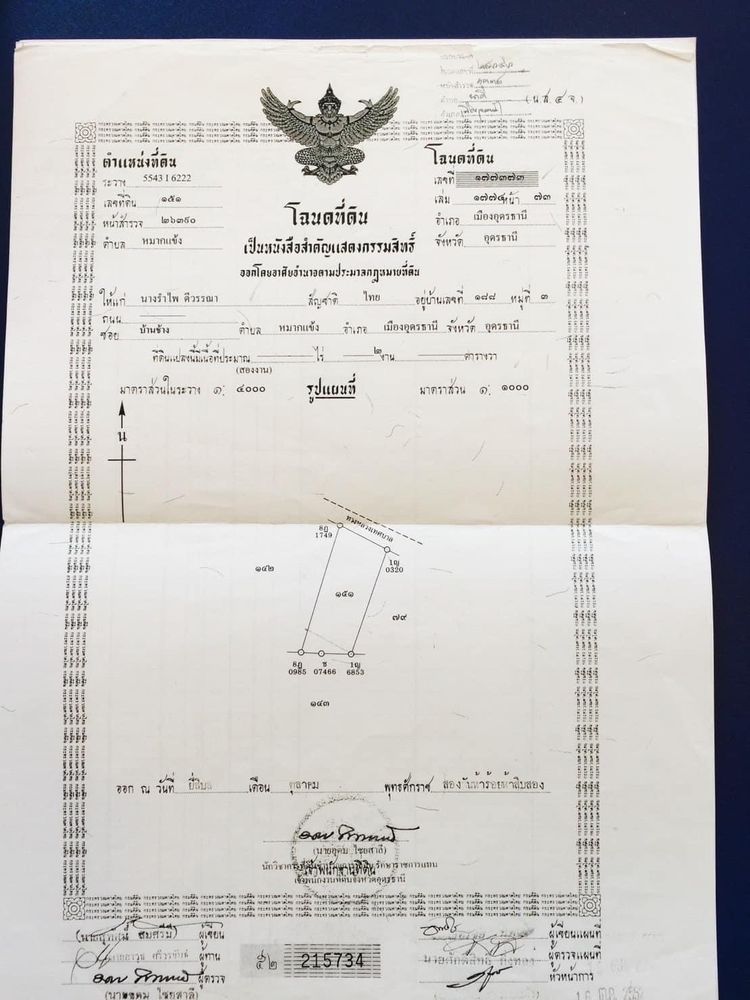 (น.ส. ๔ จ.)
ตำแหน่งที่ดิน
ระวาง 5543 I 6222
เลขที่ดิน ๑๕๑
หน้าสำรวจ ๒๖๓๙๐
ตำบล หมากแข้ง
โฉนดที่ดิน
เลขที่ ๑๗๗๓๗๓
เล่ม ๑๗๗๔ หน้า ๗๓
อำเภอ เมืองอุดรธานี
จังหวัด อุดรธานี
โฉนดที่ดิน
เป็นหนังสือสำคัญแสดงกรรมสิทธิ์
ออกโดยอาศัยอำนาจตามประมวลกฎหมายที่ดิน
ให้แก่ นางรำไพ ดีวรรณา สัญชาติ ไทย อยู่บ้านเลขที่ ๑๘๘ หมู่ที่ ๓
ถนน
ซอย บ้านช้าง ตำบล หมากแข้ง อำเภอ เมืองอุดรธานี จังหวัด อุดรธานี
ที่ดินแปลงนี้มีเนื้อที่ประมาณ ไร่ ๒ งาน ตารางวา
(สองงาน)
มาตราส่วนในระวาง ๑: ๔๐๐๐ รูปแผนที่ มาตราส่วน ๑: ๑๐๐๐
น
ทางหลวงเทศบาล
8ฎ
1749
1ญ
0320
๑๔๒
๑๕๑
๗๙
8ฎ ซ 1ญ
0985 07466 6853
๑๔๓
ออก ณ วันที่ ยี่สิบ เดือน ตุลาคม พุทธศักราช สองพันห้าร้อยห้าสิบสอง
(นายอุดม ไชยสาลี)
เจ้าพนักงานที่ดิน
เจ้าพนักงานที่ดินจังหวัดอุดรธานี
ผู้เขียน
ผู้ทาน
ผู้ตรวจ
(นายอุดม ไชยสาลี)
215734
ผู้เขียนแผนที่
ผู้ตรวจแผนที่
หัวหน้าการ